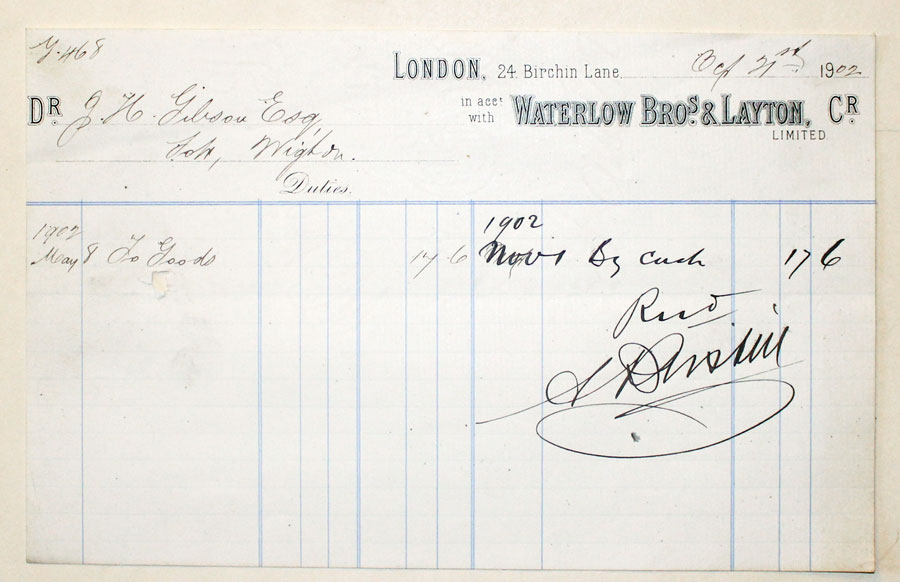 LONDON, 24 Birchin Lane, Oct 21st 1902
DR J. H. Gibson Esq, in acct with WATERLOW BROS. & LAYTON, LIMITED. CR
Wigton.
Duties.
1902
May 8 To Goods 17 6
1902
Nov 1 By cash 17 6
Recd